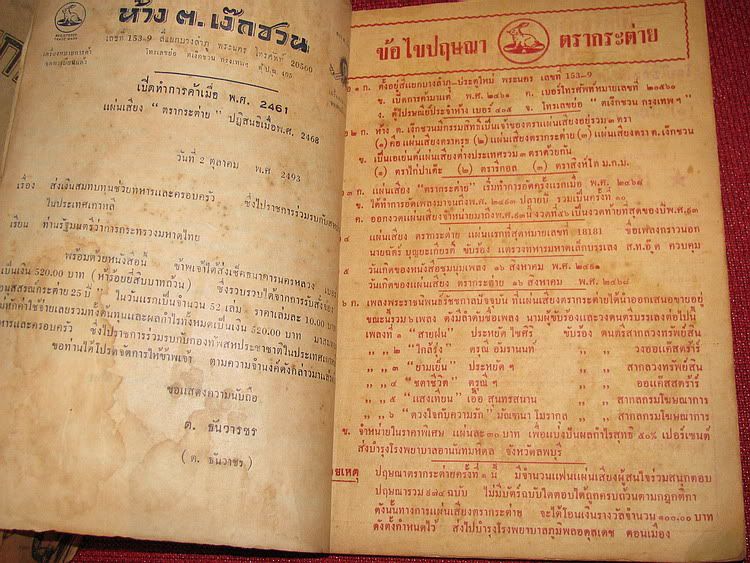 ห้าง ต. เง๊กชวน
เลขที่ 153-9 สี่แยกบางลำภู พระนคร โทรศัพท์ 20560
โทรเลขย่อ ตเง๊กชวน กรุงเทพฯ ตู้ ป.ณ. 405
เปิดทำการค้าเมื่อ พ.ศ. 2461
แผ่นเสียง " ตรากระต่าย " ปฏิสนธิเมื่อพ.ศ. 2468
วันที่ 2 ตุลาคม พ.ศ 2493
เรื่อง ส่งเงินสมทบทุนช่วยทหารและครอบครัว ซึ่งไปราชการร่วมรบกับสหประ
ในประเทศเกาหลี
เรียน ท่านรัฐมนตรีว่าการกระทรวงมหาดไทย
พร้อมด้วยหนังสือนี้ ข้าพเจ้าได้ส่งเช็คธนาคารนครหลวง
เป็นเงิน 520.00 บาท (ห้าร้อยยี่สิบบาทถ้วน) ซึ่งรวบรวมได้จากการ
อนุสสรณ์กระต่าย 25 ปี " ในวันแรกที่นี้จำนวน 52 เล่ม ราคาเล่มละ 10.00 บาท
ค่าใช้จ่ายเลยรวมทั้งต้นทุนและผลกำไรทั้งหมดเป็นเงิน 520.00 บาท
หารและครอบครัว ซึ่งไปราชการร่วมรบกับกองทัพสหประชาชาติในประเทศเกาหลี
ขอท่านได้โปรดจัดการให้ข้าพเจ้า ตามความจำนงค์ดังกล่าวมาแล้ว
ขอแสดงความนับถือ
ต. ธันวารชร
( ต. ธันวาชร )
ข้อไขปฤษณา ตรากระต่าย
ข้อ ๑ ก. ตั้งอยู่สี่แยกบางลำภู-ประตูใหม่ พระนคร เลขที่ 153-9
ข. เปิดการค้ามาแต่ พ.ศ. ๒๔๖๑ ค. เบอร์โทรศัพท์หมายเลข ๒๐๕๖๐
ง. ตู้ไปรษณีย์ประจำห้าง เบอร์ ๔๐๕ จ. โทรเลขย่อ " ตเง๊กชวน กรุงเทพ ฯ "
ข้อ ๒ ก. ห้าง ต. เง๊กชวนมีกรรมสิทธิเป็นเจ้าของตราแผ่นเสียงอยู่รวม ๓ ตรา
(๑) คือ แผ่นเสียงตราครุธ (๒) แผ่นเสียงตรากระต่าย (๓) แผ่นเสียงตรา ต. เง๊กชวน
ข. เป็นเอเย่นต์แผ่นเสียงต่างประเทศรวม ๓ ตราด้วยกัน
(๑) ตราไก่ปาเต๊ะ (๒) ตรารีกอล (๓) ตราสิงห์โต ม.ก.ม.
๓ ก. แผ่นเสียง "ตรากระต่าย" เริ่มทำการอัดครั้งแรกเมื่อ พ.ศ. ๒๔๖๘
ข. ได้ทำการอัดเพลงมาจนถึงพ.ศ. ๒๔๙๓ ปลายปี รวมเป็นครั้งที่ ๓๐
ค. ออกงวดแผ่นเสียงจำหน่ายมาถึงพ.ศ.๙๓ นี้งวดที่๔๖ เป็นงวดท้ายที่สุดของปีพ.ศ.๙๓
๔ แผ่นเสียง ตรากระต่าย แผ่นแรกที่สุดหมายเลขที่ 18181 ชื่อเพลงกราวนอก
นายฉัตร์ บุญยะเกียรติ์ ขับร้อง แตรวงทหารมหาดเล็กบรรเลง ส.ท.อู๊ด ควบคุม
๕ วันเกิดของหนังสือชุมนุมเพลง ๑๖ สิงหาคม พ.ศ. ๒๔๘๑
วันเกิดของแผ่นเสียง ตรากระต่าย ๑๖ สิงหาคม พ.ศ. ๒๔๖๘
๖ ก. เพลงพระราชนิพนธ์รัชชกาลปัจจุบัน ที่แผ่นเสียงตรากระต่ายได้นำออกเสนอขายอยู่
ขณะนี้รวม ๖ เพลง ดังมีลำดับชื่อเพลง นามผู้ขับร้องและวงดนตรีบรรเลงต่อไปนี้
เพลงที่ ๑ "สายฝน" ประหยัด ไชศิริ ขับร้อง ดนตรีสากลวงทรัพย์สิน
,, ,, ๒ "ใกล้รุ่ง" ดรุณี อัมรานนท์ ,, วงออแค๊สตร้าร์
,, ,, ๓ "ยามเย็น" ประหยัด ฯ ,, สากลวงทรัพย์สิน
,, ,, ๔ "ชตาชีวิต" ดรุณี ฯ ,, ออแค๊สตร้าร์
,, ,, ๕ "แสงเทียน" เอื้อ สุนทรสนาน ,, สากลกรมโฆษณาการ
,, ,, ๖ "ดวงใจกับความรัก" มัณฑนา โมรากุล ,, สากลกรมโฆษณาการ
ข. จำหน่ายในราคาพิเศษ แผ่นละ ๓๐ บาท เพื่อแบ่งปันผลกำไรสุทธิ ๕๐% เปอร์เซนต์
ส่งบำรุงโรงพยาบาลอานันทมหิดล จังหวัดลพบุรี
ายเหตุ ปฤษณาตรากระต่ายครั้งที่ ๑ นี้ มีจำนวนแฟนแผ่นเสียงผู้สนใจร่วมสนุกตอบ
ปฤษณารวม ๔๗๔ ฉบับ ไม่มีบัตร์ฉบับใดตอบได้ถูกครบถ้วนตามกฎกติกา
ดังนั้นทางการแผ่นเสียงตรากระต่าย จะได้โอนเงินรางวัลจำนวน ๑๐๐.๐๐ บาท
ดังตั้งกำหนดไว้ ส่งไปบำรุงโรงพยาบาลภูมิพลอดุลเดช ดอนเมือง